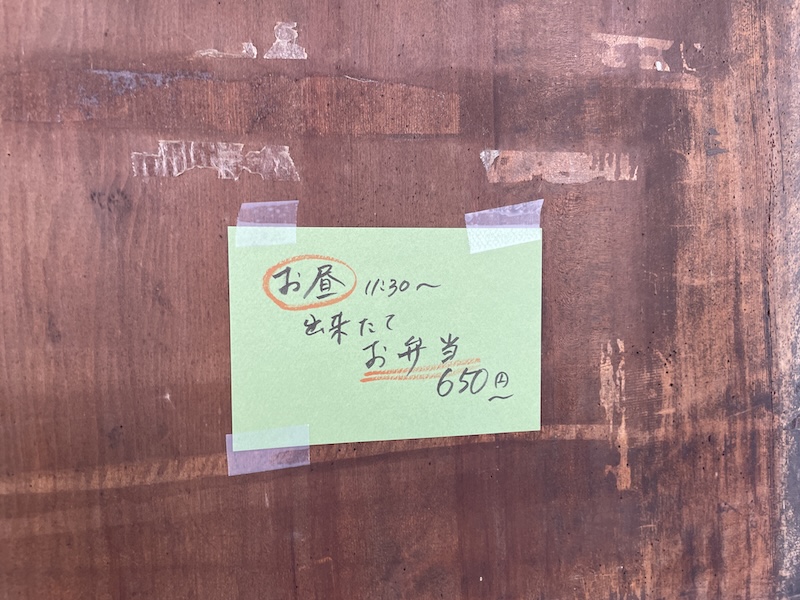 お昼 11:30〜
出来たて
お弁当
650円〜